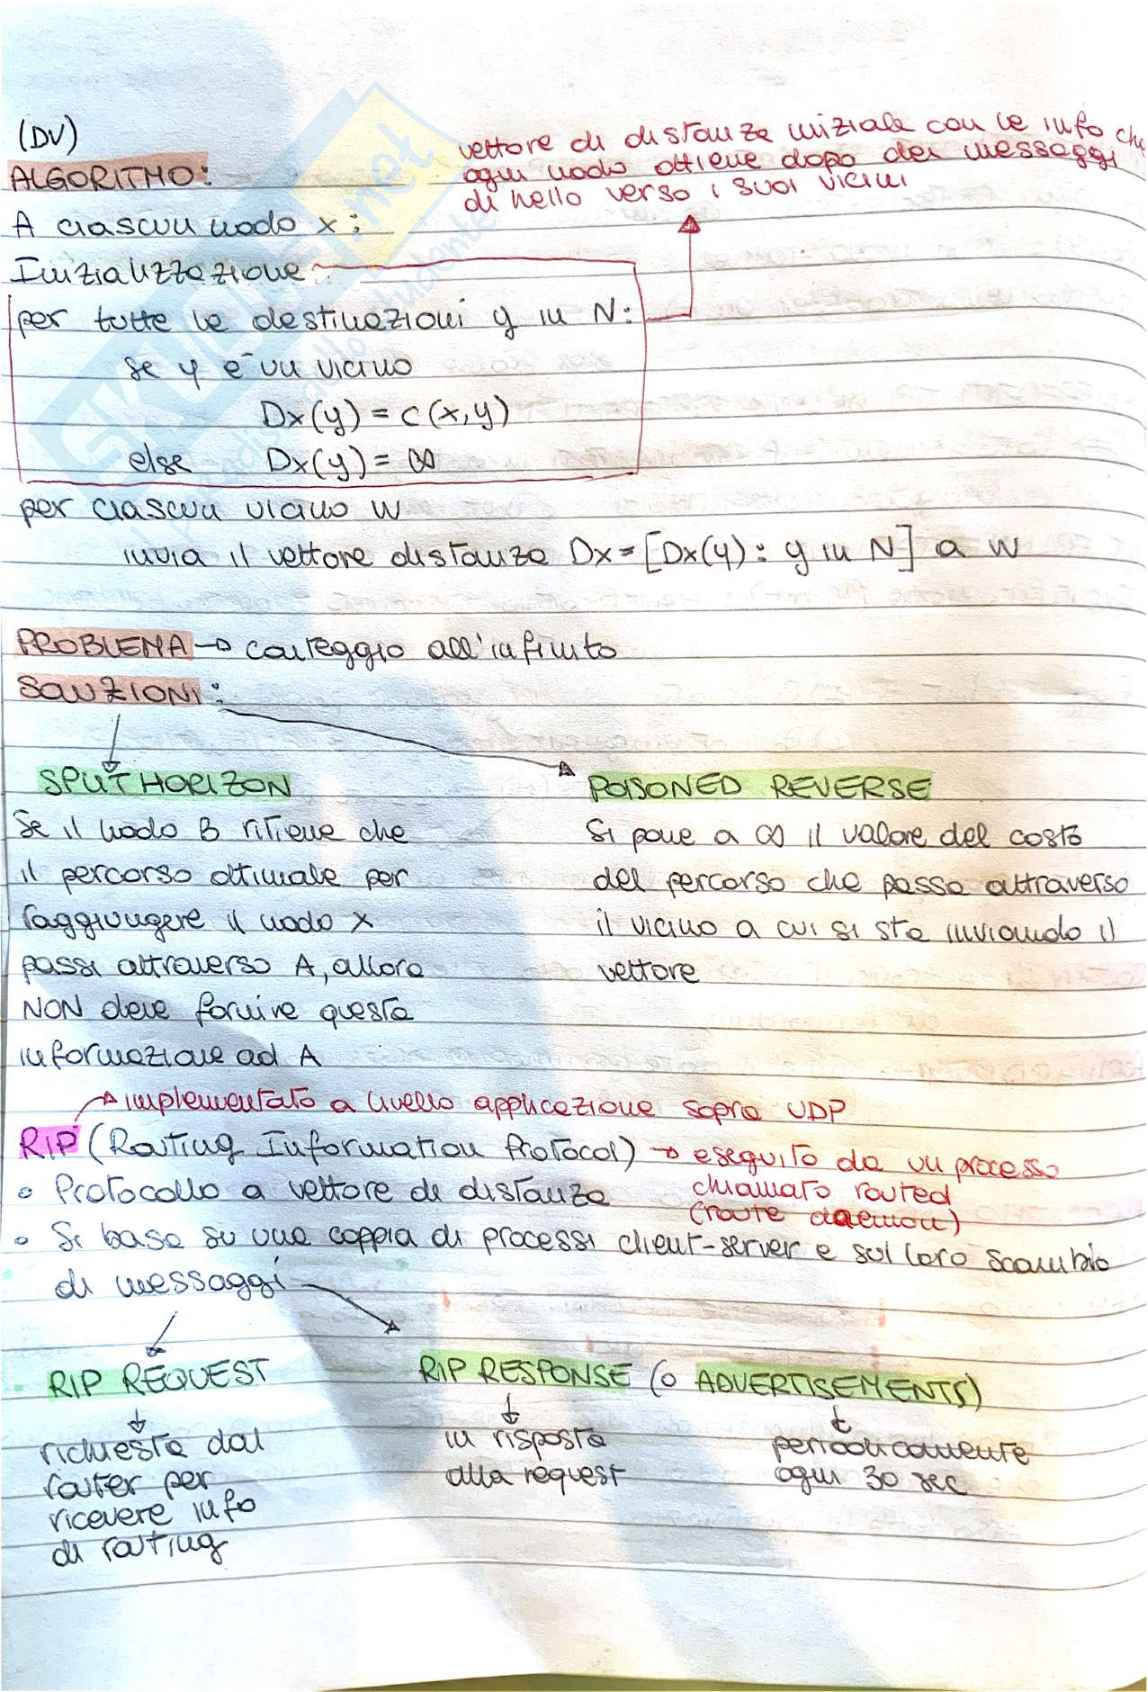 (DV)
vettore di distanza iniziale con le info che
ogni nodo ottiene dopo dei messaggi
di hello verso i suoi vicini
ALGORITMO:
A ciascun nodo x:
Inizializzazione
per tutte le destinazioni y in N:
se y è un vicino
Dx(y) = c(x,y)
else Dx(y) = ∞
per ciascun vicino w
invia il vettore distanza Dx = [Dx(y): y in N] a w
PROBLEMA → conteggio all'infinito
SOLUZIONI:
SPLIT HORIZON
Se il nodo B ritiene che
il percorso ottimale per
raggiungere il nodo x
passi attraverso A, allora
NON deve fornire questa
informazione ad A
POISONED REVERSE
Si pone a ∞ il valore del costo
del percorso che passa attraverso
il vicino a cui si sta inviando il
vettore
→ implementato a livello applicazione sopra UDP
RIP (Routing Information Protocol) → eseguito da un processo
chiamato routed
(route daemon)
• Protocollo a vettore di distanza
• Si basa su una coppia di processi client-server e sul loro scambio
di messaggi
RIP REQUEST
richiesta dal
router per
ricevere info
di routing
RIP RESPONSE (o ADVERTISEMENTS)
in risposta
alla request
periodicamente
ogni 30 sec
SKUOLA.net